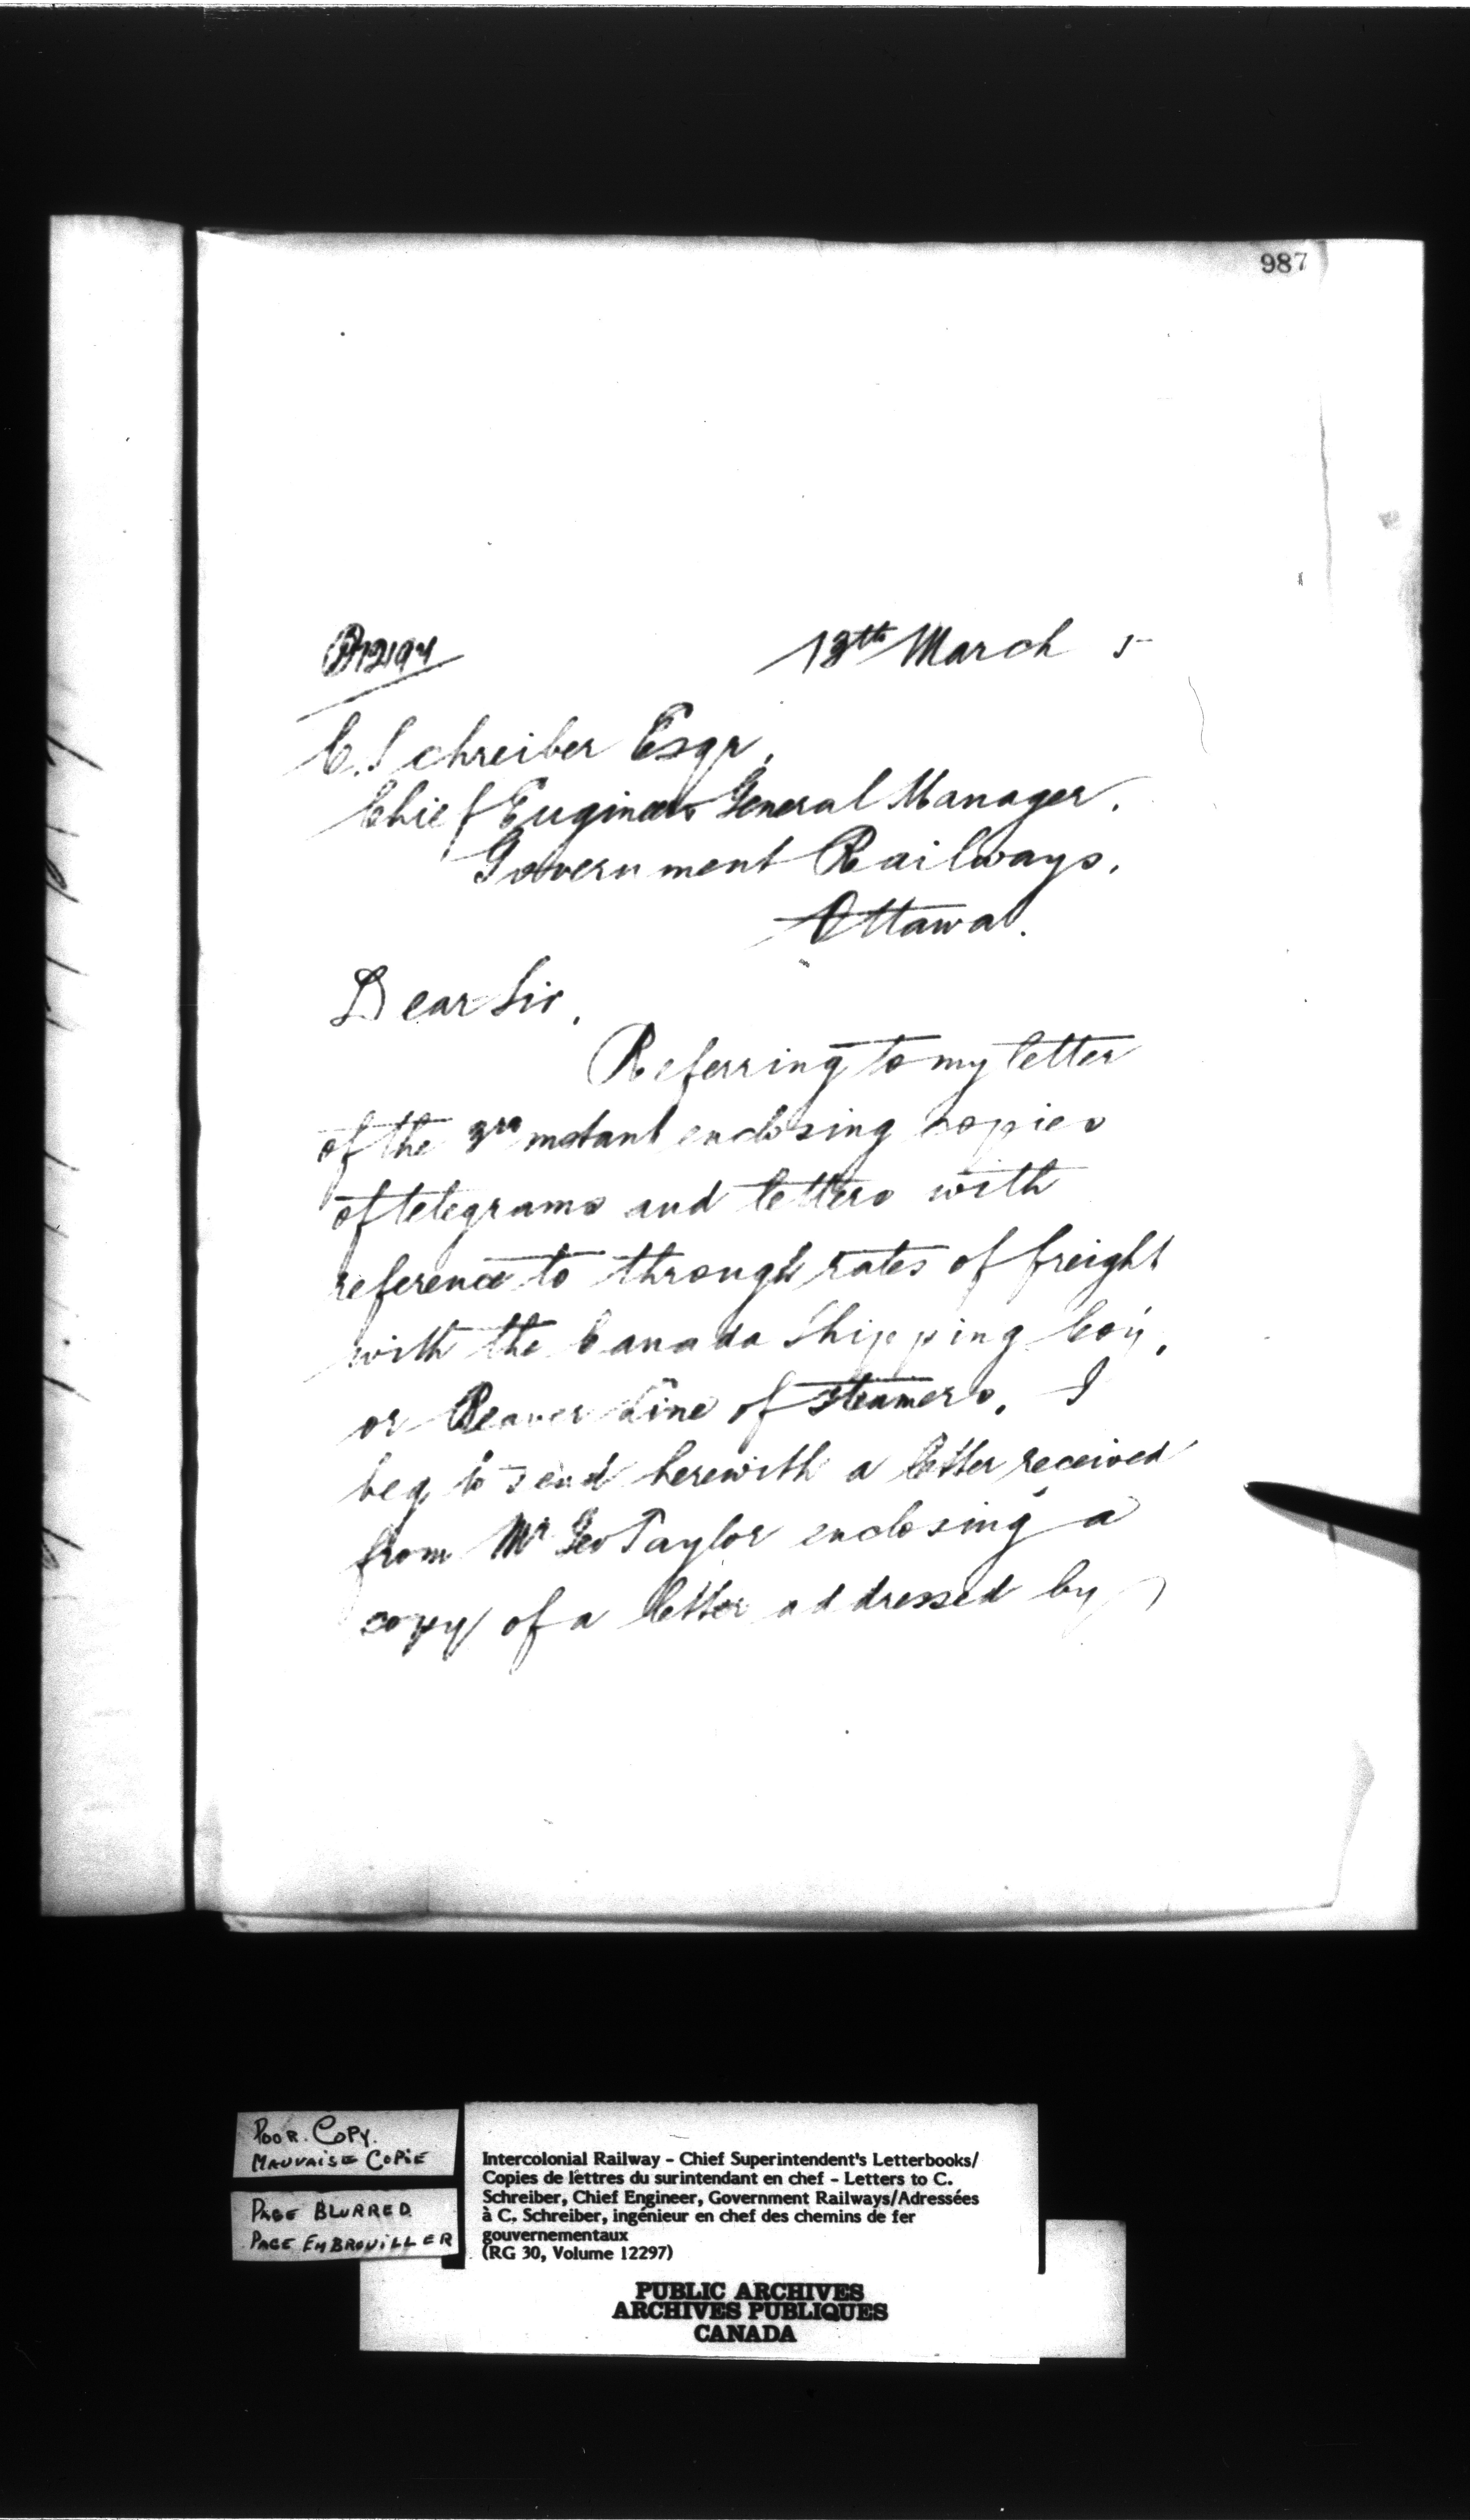 987
13th March 5
C. Schreiber Esqr,
Chief Engineer & General Manager,
Government Railways,
Ottawa.
Dear Sir,
Referring to my letter
of the 3rd instant enclosing copies
of telegrams and letters with
reference to through rates of freight
with the Canada Shipping Coy,
or Beaver Line of Steamers, I
beg to send herewith a letter received
from Mr Geo Taylor enclosing a
copy of a letter addressed by
POOR. COPY.
MAUVAISE COPIE
PAGE BLURRED
PAGE EMBROUILLER
Intercolonial Railway - Chief Superintendent's Letterbooks/
Copies de lettres du surintendant en chef - Letters to C.
Schreiber, Chief Engineer, Government Railways/Adressées
à C. Schreiber, ingénieur en chef des chemins de fer
gouvernementaux
(RG 30, Volume 12297)
PUBLIC ARCHIVES
ARCHIVES PUBLIQUES
CANADA